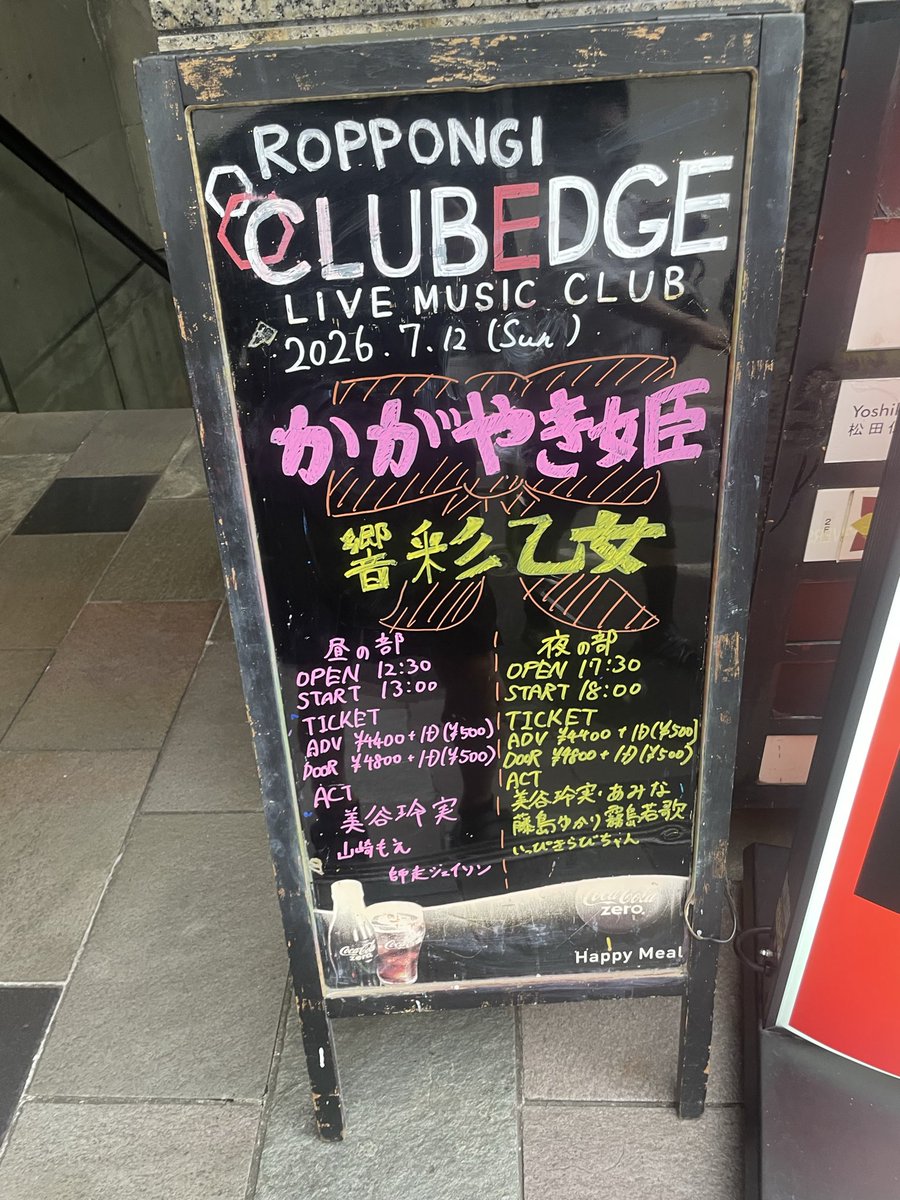 ROPPONGI
CLUBEDGE
LIVE MUSIC CLUB
2026.7.12 (Sun)
かがやき姫
響彩乙女
昼の部
OPEN 12:30
START 13:00
TICKET
ADV ¥4400+1D(¥500)
DOOR ¥4800+1D(¥500)
ACT
美谷玲実
山崎もえ
師走ジェイソン
夜の部
OPEN 17:30
START 18:00
TICKET
ADV ¥4400+1D(¥500)
DOOR ¥4800+1D(¥500)
ACT
美谷玲実・あみな
藤島ゆかり 霧島若歌
いっぴきらびちゃん
Coca-Cola
zero.
Coca-Cola
Coca-Cola
zero.
Happy Meal
Yoshi
松田
2F